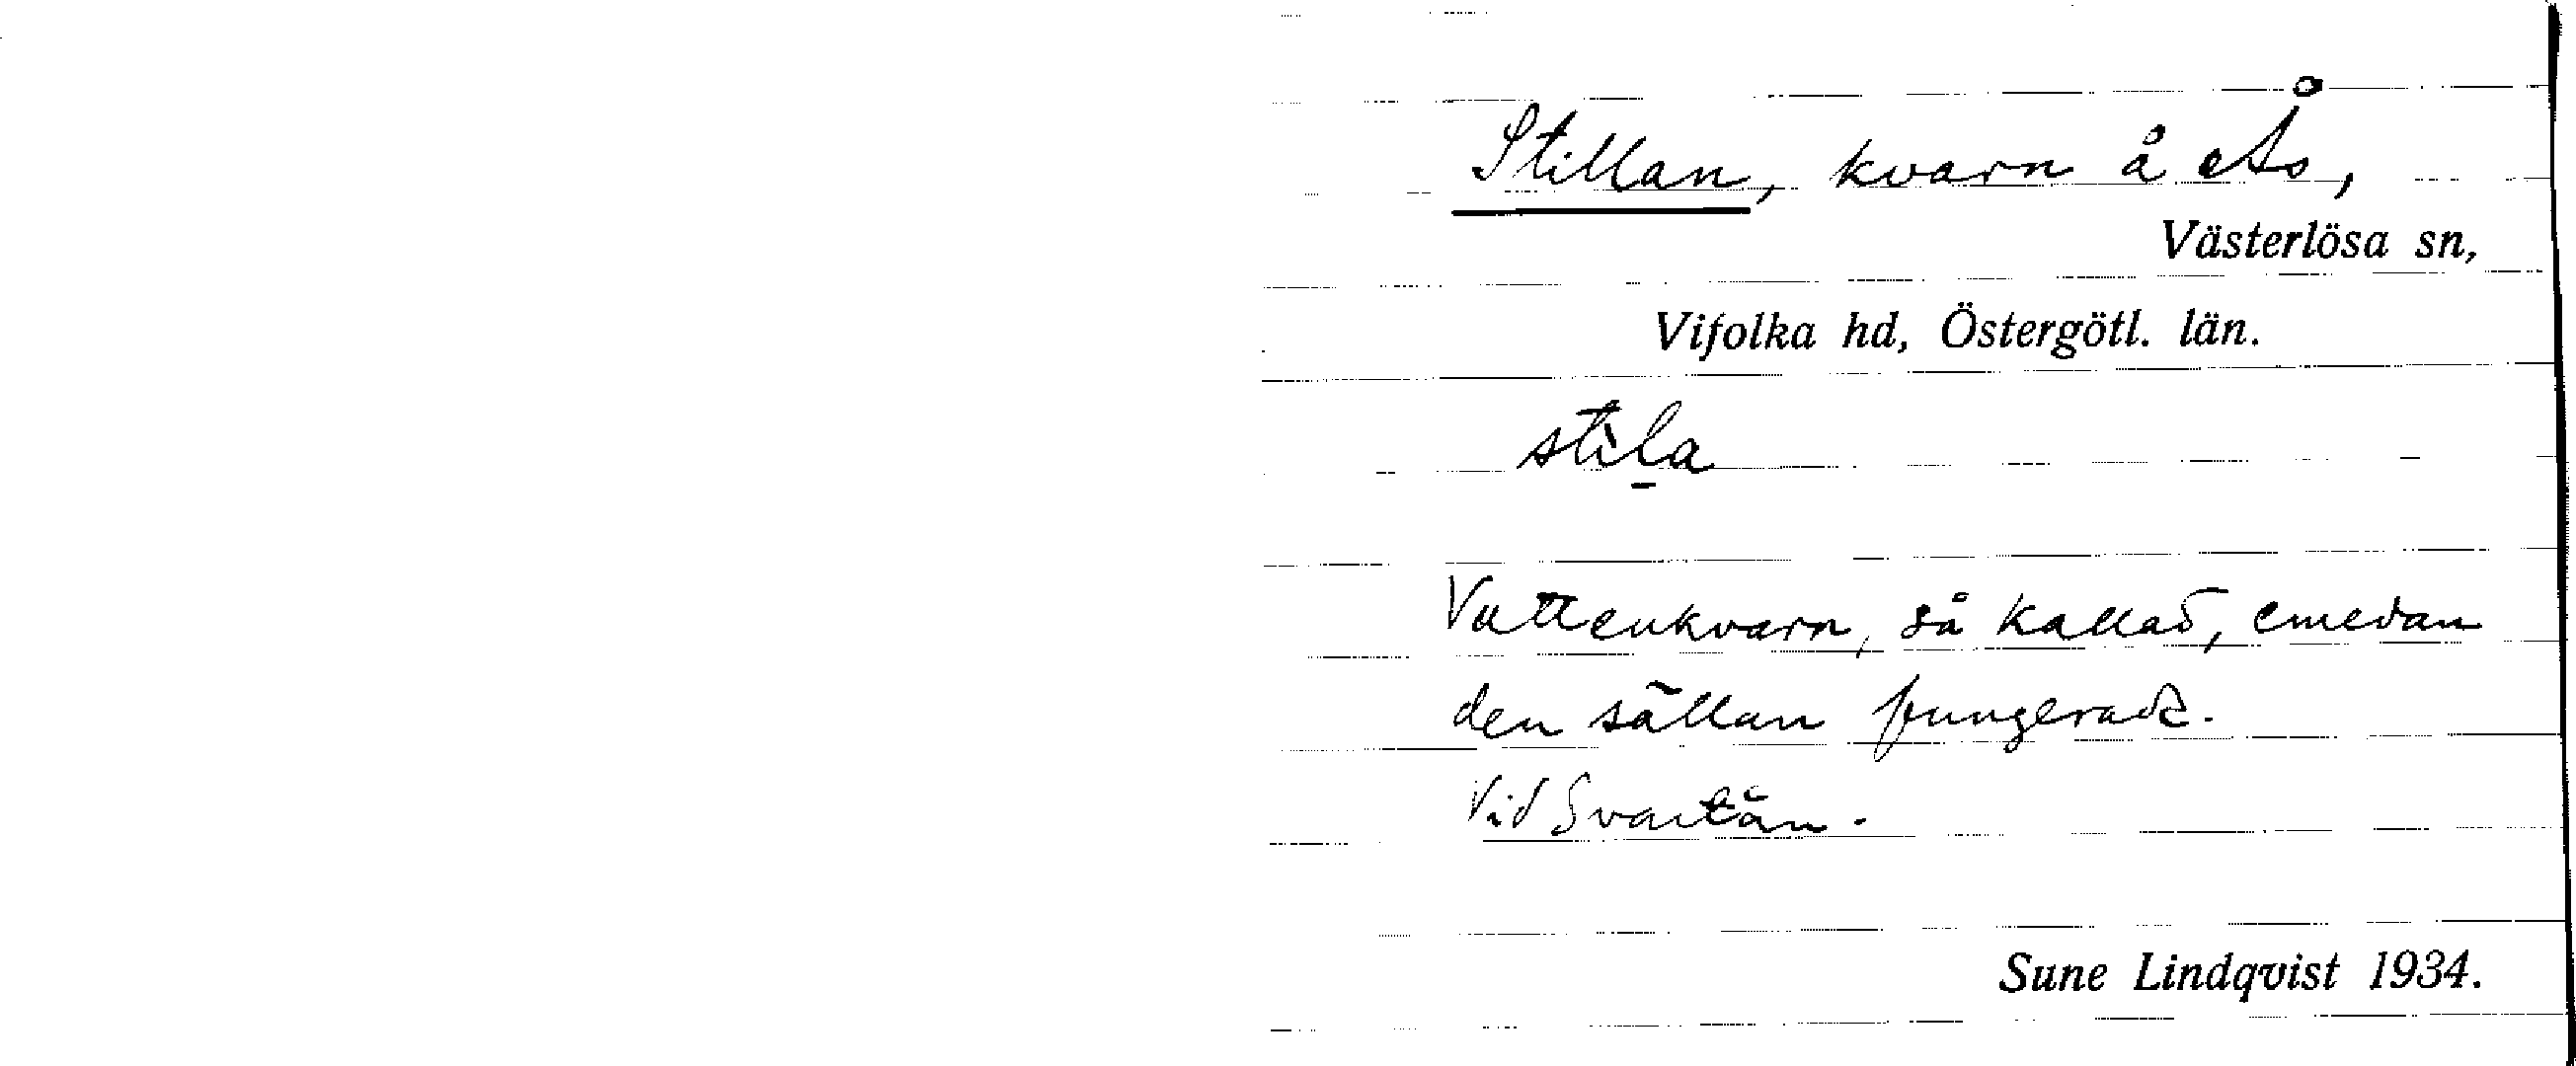 Stillan, kvarn å Ås,
Västerlösa sn,
Vifolka hd, Östergötl. län.
stìl̠a
Vattenkvarn, så kallad, emedan
den sällan fungerade.
Vid Svartån.
Sune Lindqvist 1934.